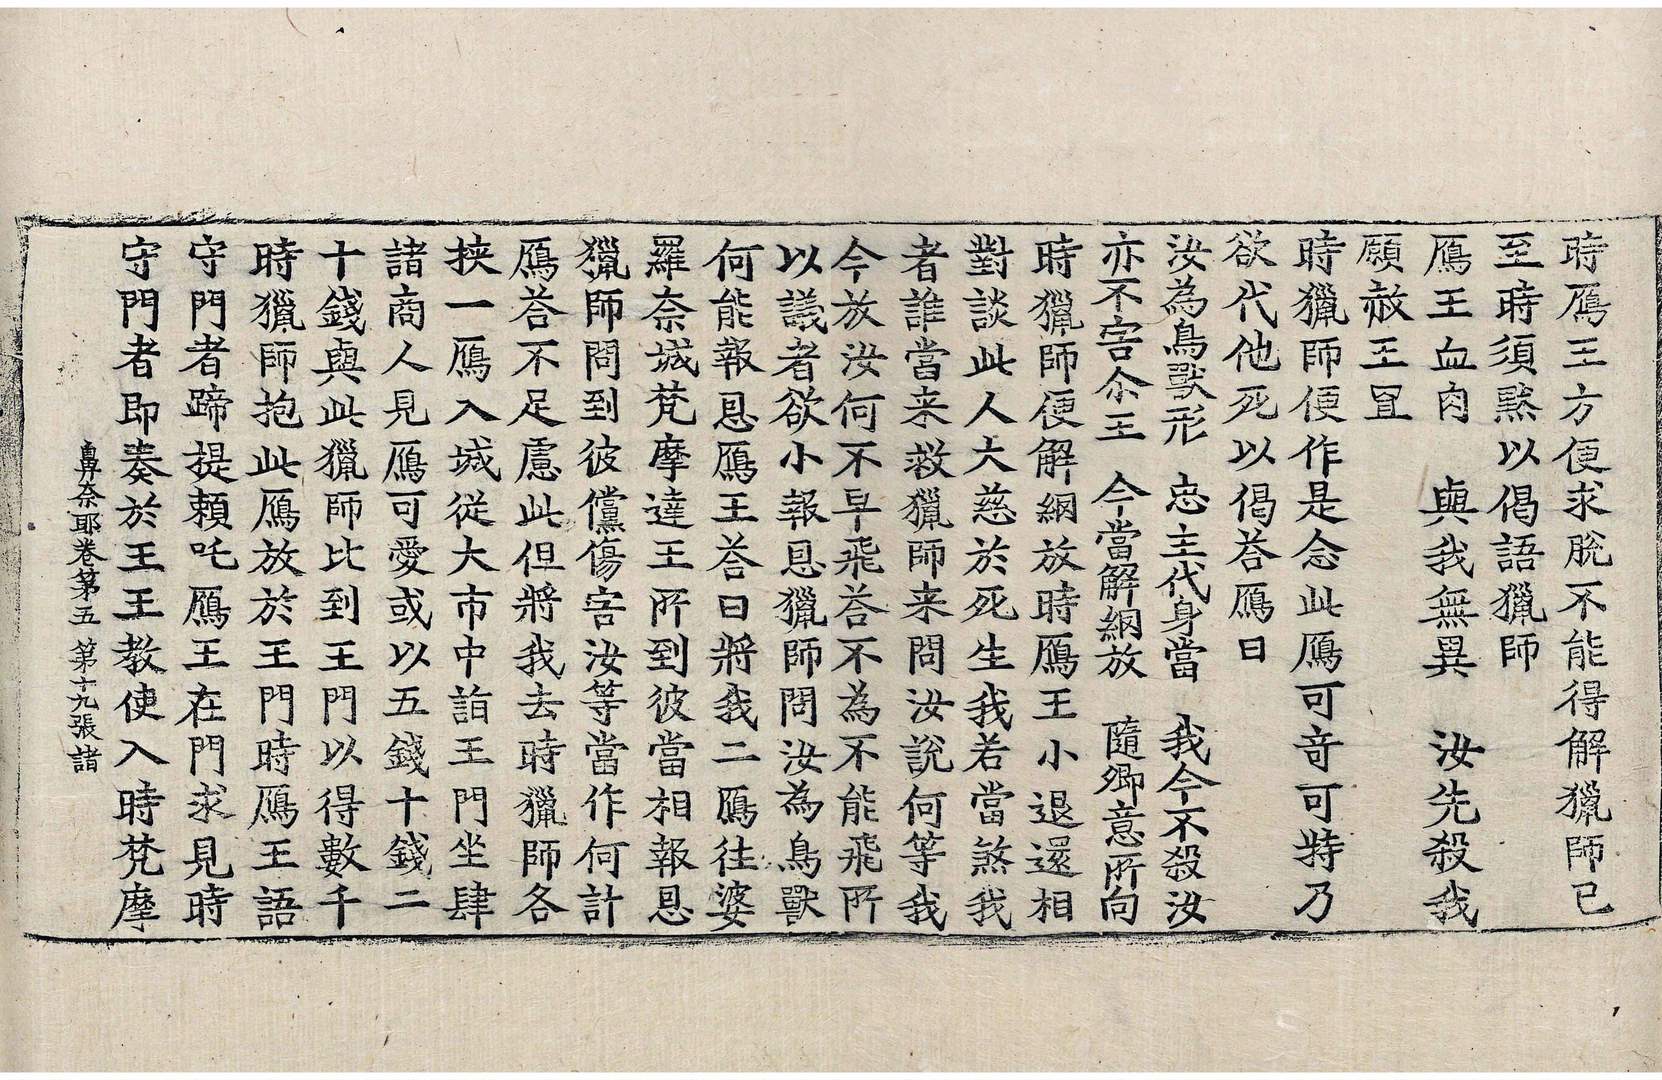 時鴈王方便求脫不能得解獵師已
至時須黙以偈語獵師
鴈王血肉　與我無異　汝先殺我
願赦王罝
時獵師便作是念此鴈可竒可特乃
欲代他死以偈荅鴈曰
汝為鳥獸形　忘主代身當　我今不殺汝
亦不害尒王　今當解網放　隨卿意所向
時獵師便解網放時鴈王小退還相
對談此人大慈於死生我若當煞我
者誰當来救獵師来問汝說何等我
今放汝何不早飛荅不為不能飛所
以議者欲小報恩獵師問汝為鳥獸
何能報恩鴈王荅曰將我二鴈往婆
羅奈城梵摩達王所到彼當相報恩
獵師問到彼儻傷害汝等當作何計
鴈荅不足慮此但將我去時獵師各
挾一鴈入城從大市中詣王門坐肆
諸商人見鴈可愛或以五錢十錢二
十錢與此獵師比到王門以得數千
時獵師抱此鴈放於王門時鴈王語
守門者蹄提頼吒鴈王在門求見時
守門者即奏於王王教使入時梵摩
鼻奈耶卷第五　第十九張　諸